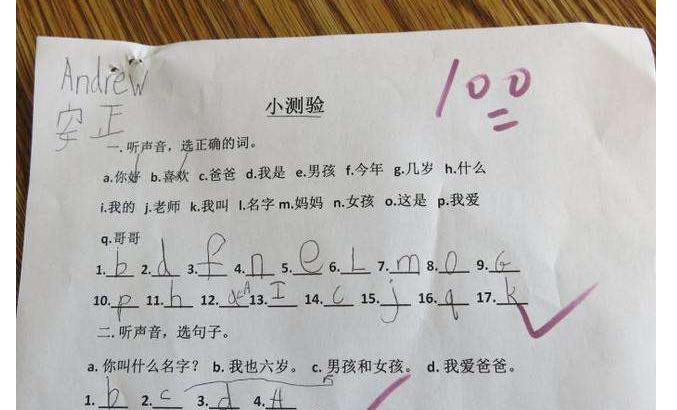 Andrew
安正
100
小测验
一. 听声音，选正确的词。
a.你好 b.喜欢 c.爸爸 d.我是 e.男孩 f.今年 g.几岁 h.什么
i.我的 j.老师 k.我叫 l.名字 m.妈妈 n.女孩 o.这是 p.我爱
q.哥哥
1. b 2. d 3. f 4. n 5. e 6. L 7. m 8. o 9. G
10. p 11. h 12. A 13. I 14. c 15. j 16. q 17. k
二. 听声音，选句子。
a. 你叫什么名字？ b. 我也六岁。 c. 男孩和女孩。 d. 我爱爸爸。
1. b 2. c 3. d 4. A